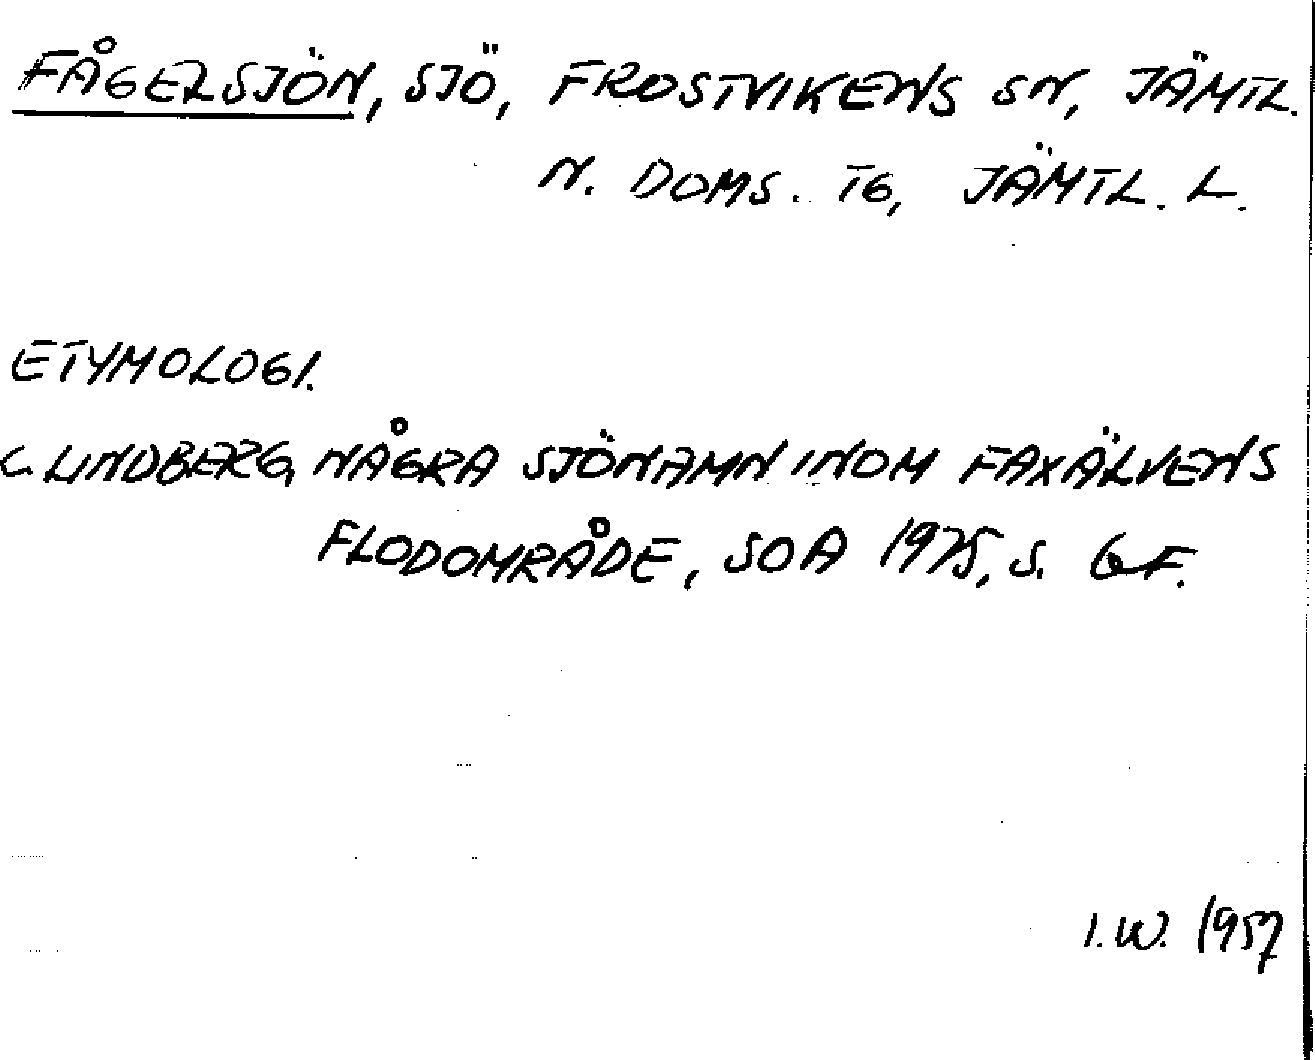 FÅGERSJÖN, SJÖ, FROSTVIKENS SN, JÄMTL.
N. DOMS. TG, JÄMTL. L.
ETYMOLOGI.
C LINDBERG, NÅGRA SJÖNAMN INOM FAXÄLVENS
FLODOMRÅDE, SOA 1975, S. 6 F.
I.W. 1957